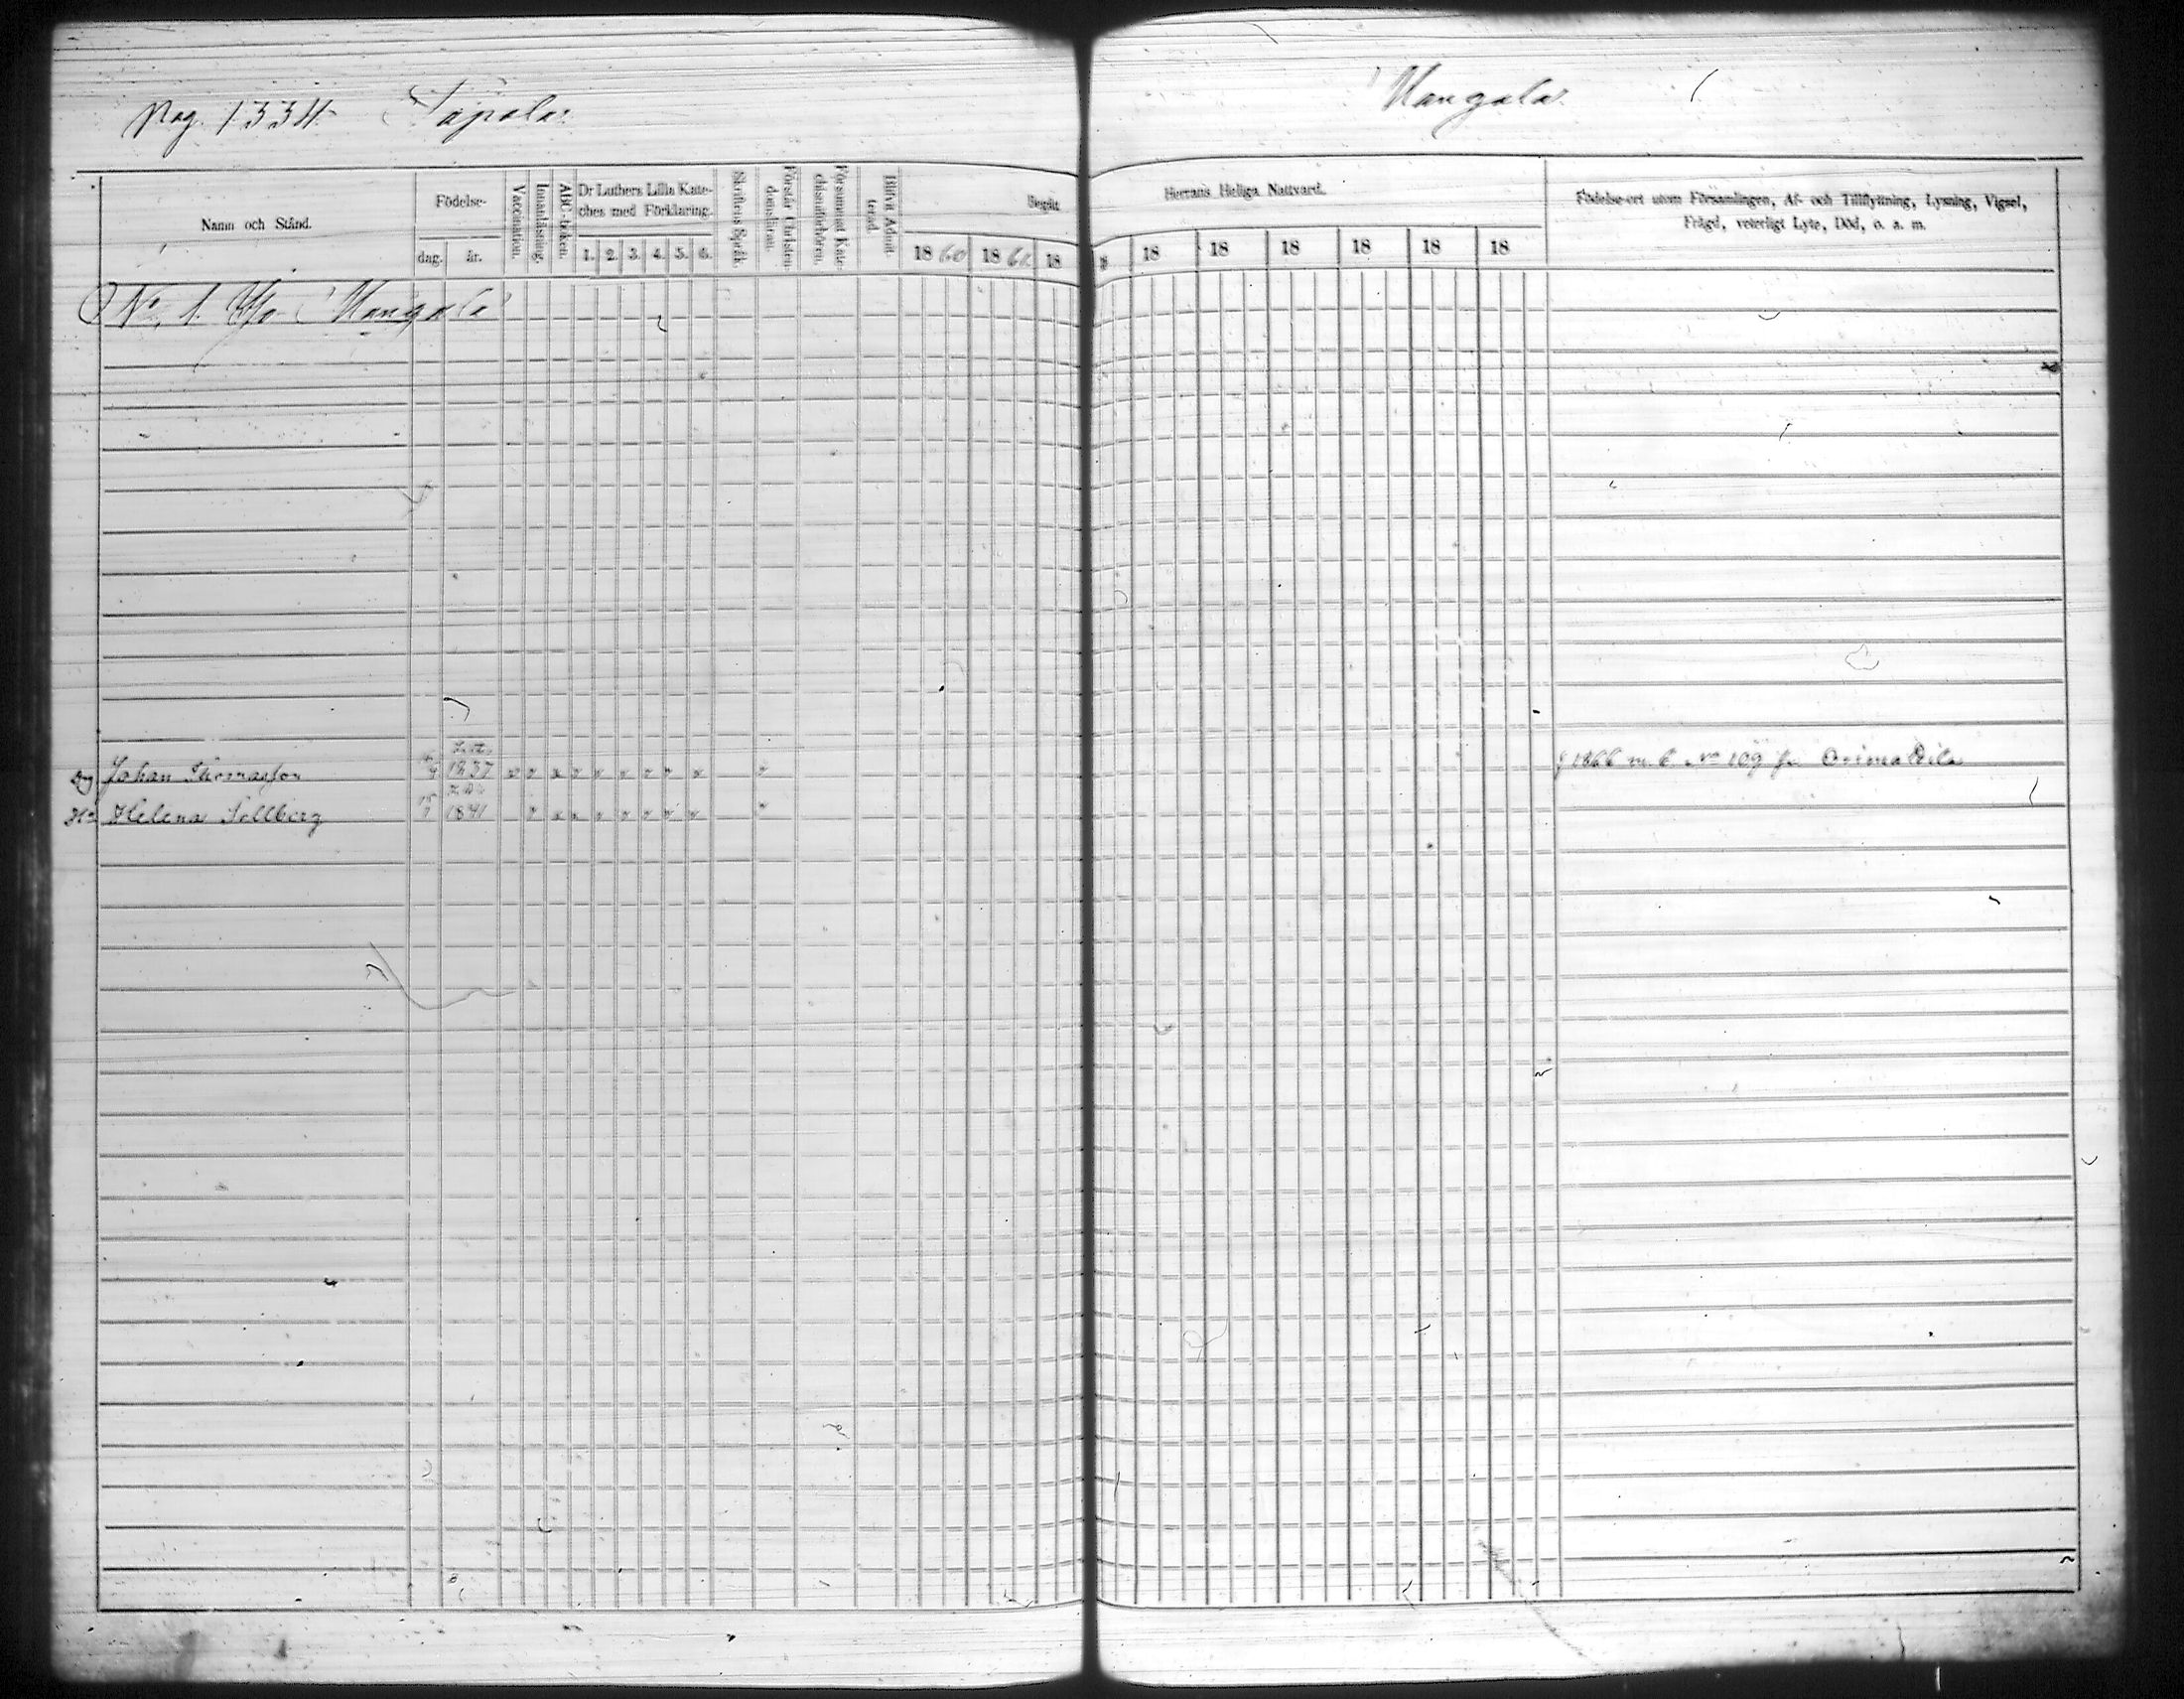 Pag. 1334. Sapola.
Uangala.
Namn och Stånd.
Födelse-
dag. år.
Vaccination.
Innanläsning.
ABC-boken.
Dr Luthers Lilla Kate-
ches med Förklaring.
1. 2. 3. 4. 5. 6.
Skriftens Språk.
Förstår Christen-
domslären.
Försummat Kate-
chismiförhören.
Blifvit Admit-
terad.
Begått
Herrans Heliga Nattvard.
1860 1861 18
18 18 18 18 18 18
Födelse-ort utom Församlingen, Af- och Tillflyttning, Lysning, Vigsel,
Frägd, veterligt Lyte, Död, o. a. m.
No. 1. Yli Uangala
Johan Thomasson 1837 1866 m. b. No 109 fr. Orimattila
Helena Sellberg 1841